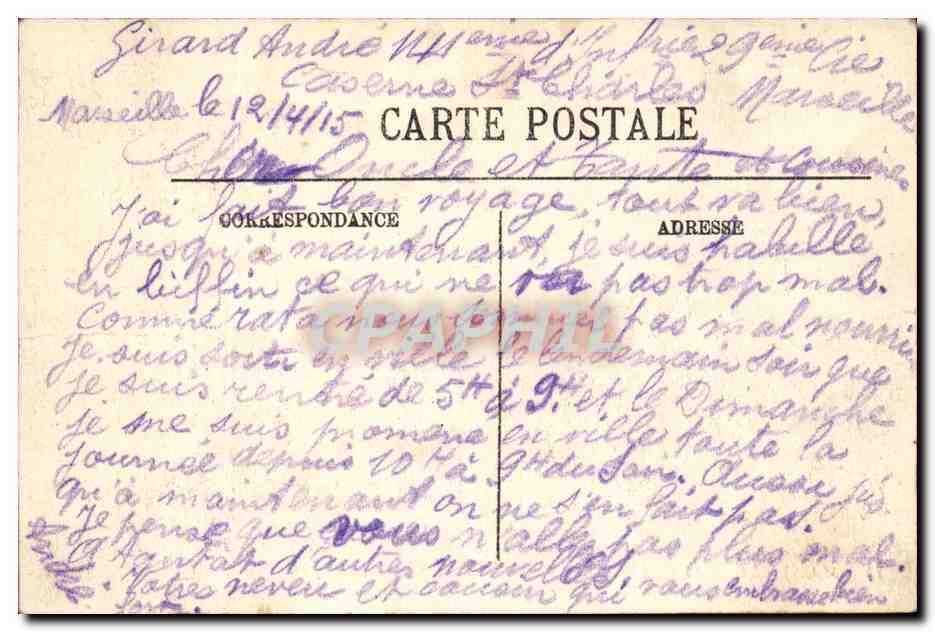 Girard André 141eme d'Infrie 29eme Cie
Caserne St Charles Marseille
Marseille le 12/4/15
CARTE POSTALE
Cher Oncle et Tante et Cousines
J'ai fait bon voyage, tout va bien,
CORRESPONDANCE
ADRESSE
jusqu'à maintenant, je suis habillé
en biffin ce qui ne va pas trop mal.
Comme rata nous sommes pas mal nourri
CPAPHIL
je suis sorti en ville le lendemain soir que
je suis rentré de 5H à 9H. et le Dimanche
je me suis promené en ville toute la
journée depuis 10H à 9H du soir. Aussi jus
qu'à maintenant on ne s'en fait pas.
Je pense que vous n'allez pas plus mal.
d'autres nouvelles
Votre neveu et cousin qui vous embrasse bien
fort.
André